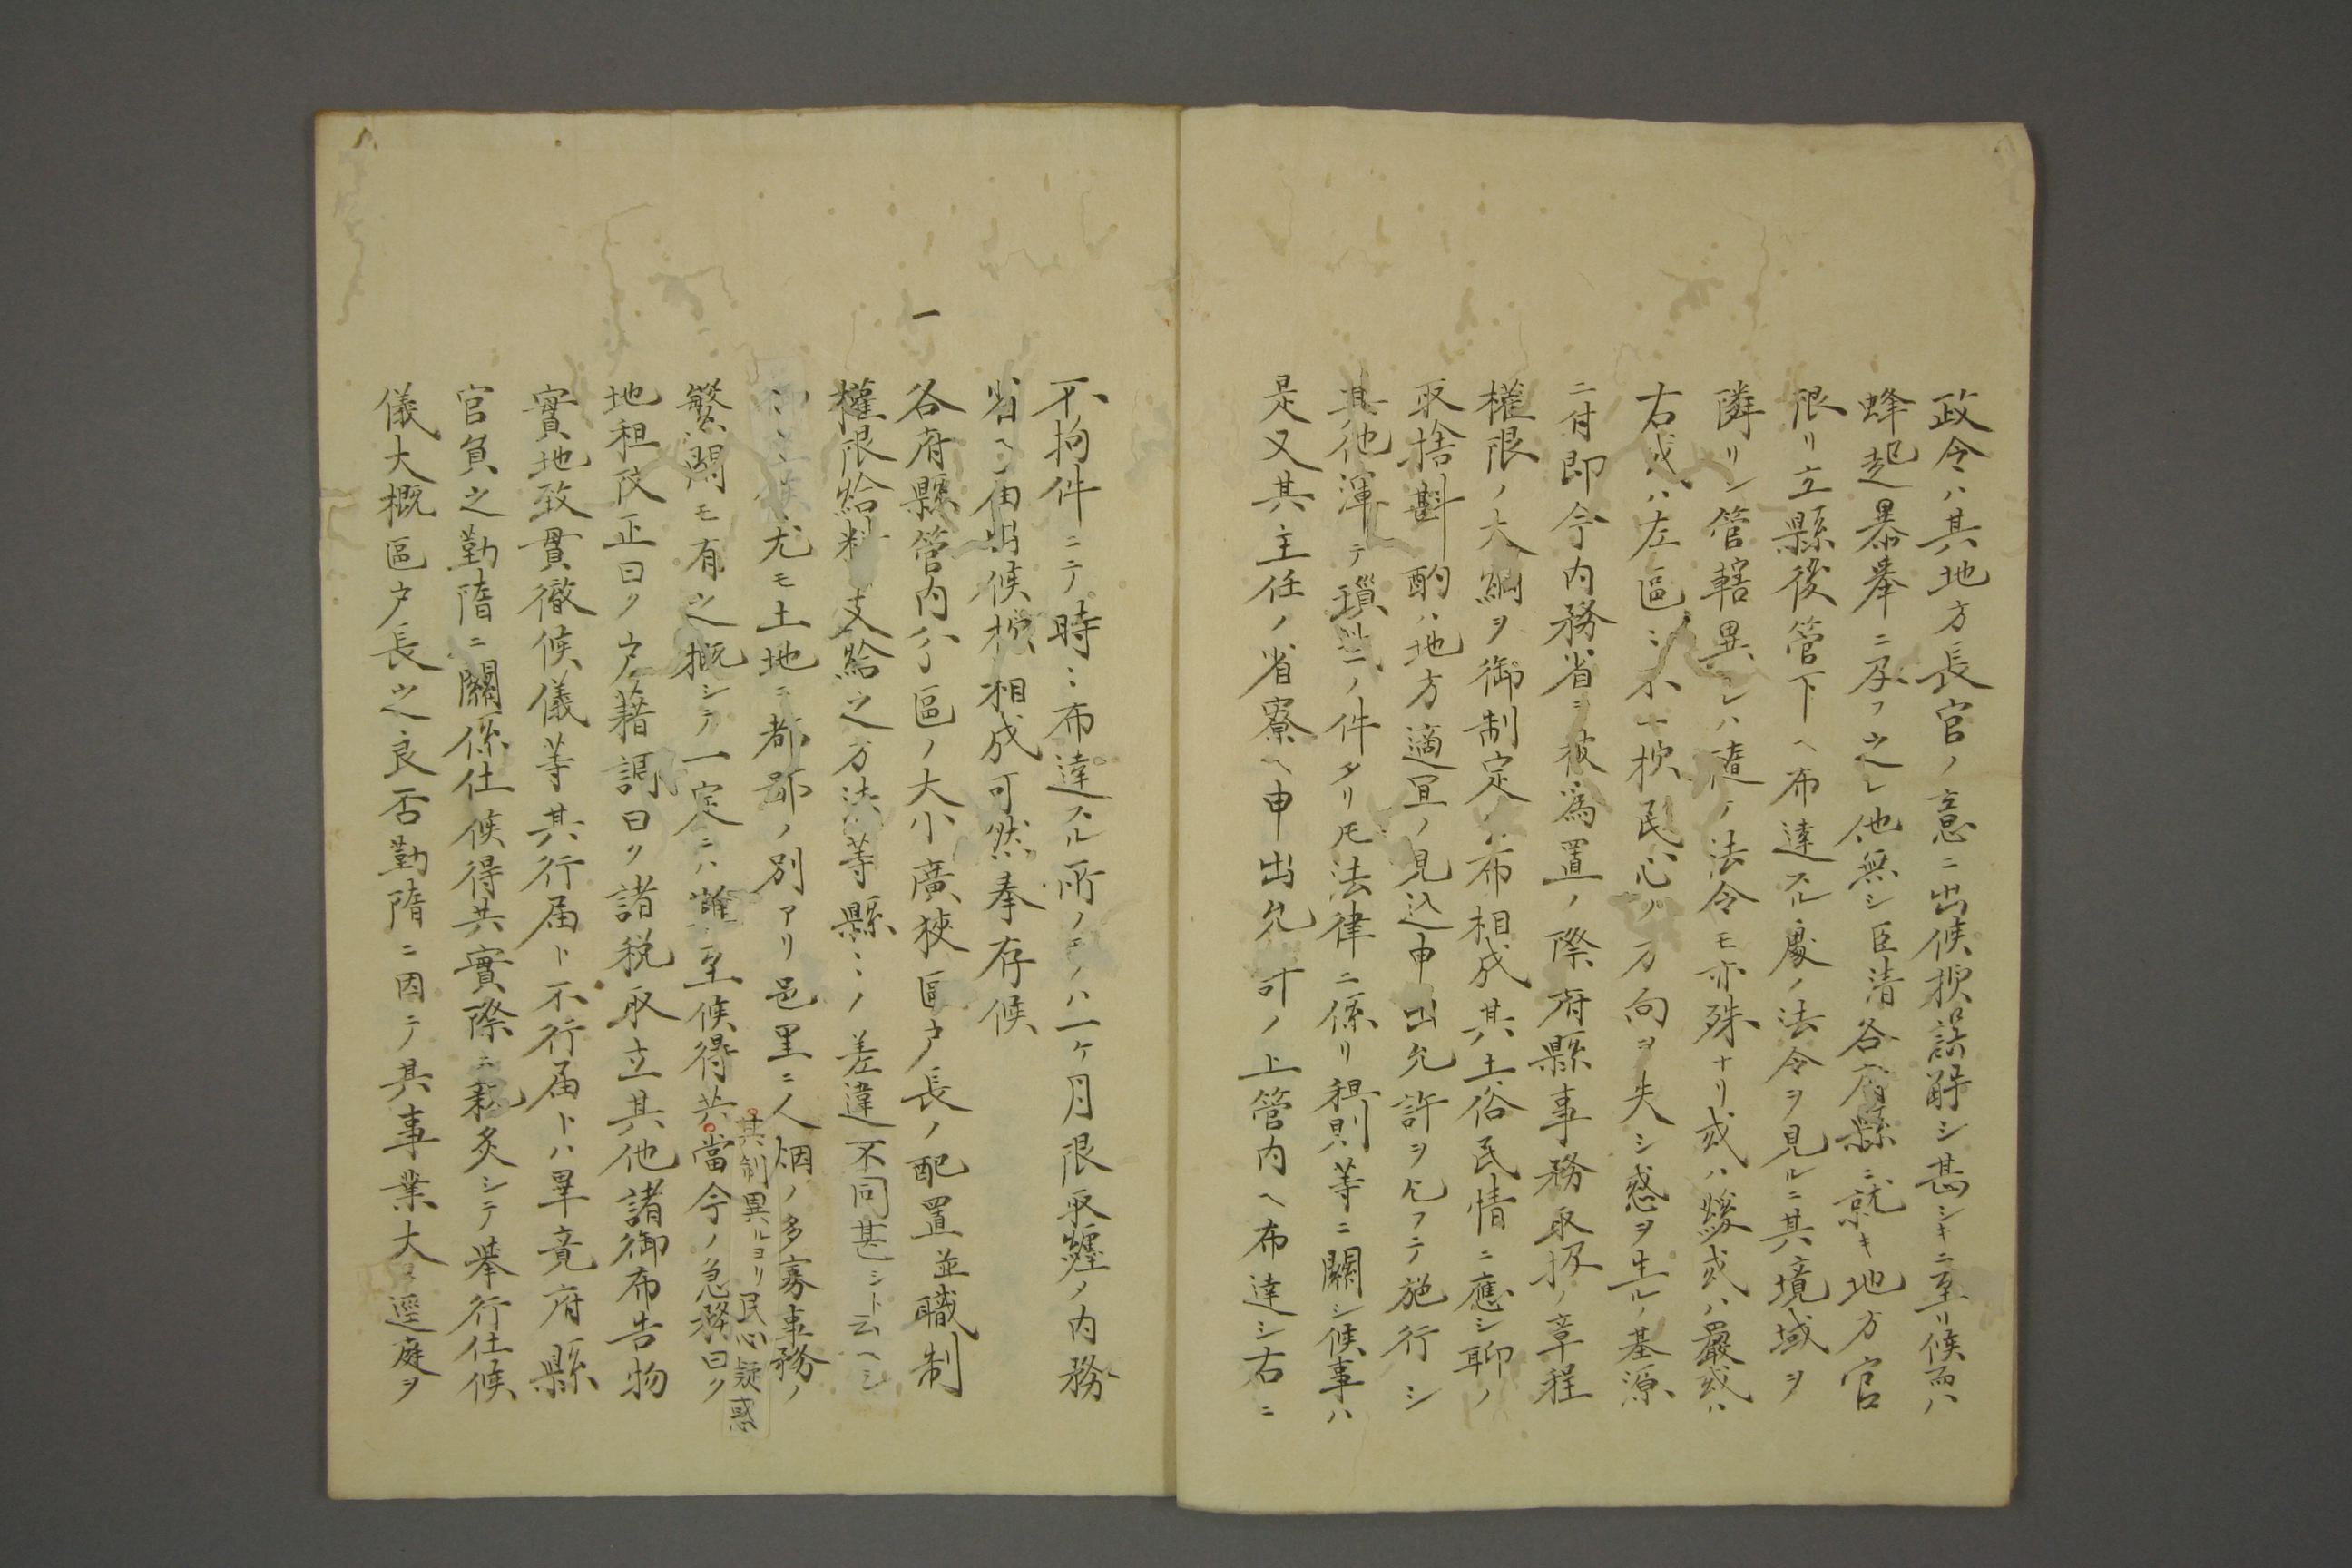 政令ハ其地方長官ノ意ニ出候抔誤解シ甚シキニ至リ候而ハ
蜂起暴挙ニ及フ之レ他無シ臣清各府縣ニ就キ地方官
限リ立縣後管下ヘ布達スル處ノ法令ヲ見ルニ其境域ヲ
隣リシ管轄異レハ随テ法令モ亦殊ナリ或ハ緩或ハ嚴或ハ
右或ハ左區ミ不一抔民心ノ方向ヲ失シ惑ヲ生ルノ基源
ニ付即今内務省ヲ被為置ノ際府縣事務取扱ノ章程
權限ノ大綱ヲ御制定ノ布相成其土俗民情ニ應シ聊ノ
取捨斟酌ハ地方適宜ノ見込申出允許ヲ乞フテ施行シ
其他渾テ瑣ノ件タリ氏法律ニ係リ租則等ニ關シ候事ハ
是又其主任ノ省寮ヘ申出允許ノ上管内ヘ布達シ右ニ
不拘件ニテ時ミ布達スル所ノモノハ一ケ月限取纏メ内務
省ヘ届出候抔相成可然奉存候
一各府縣管内分區ノ大小廣狹區戸長ノ配置並職制
權限給料支給之方法等縣ミノ差違不同甚シト云ヘシ
尤モ土地ニ都鄙ノ別アリ邑里ニ人烟ノ多寡事務ノ
繁閑モ有之概シテ一定ニハ難至候得共當今ノ急務曰ク
其制異ルヨリ民心疑惑
地租改正曰ク戸籍調曰ク諸税取立其他諸御布告物
實地致貫徹候儀等其行届ト不行届トハ畢竟府縣
官員之勤隋ニ關係仕候得共實際ニ親炙シテ挙行仕候
儀大概區戸長之良否勤隋ニ因テ其事業大ニ逕庭ヲ